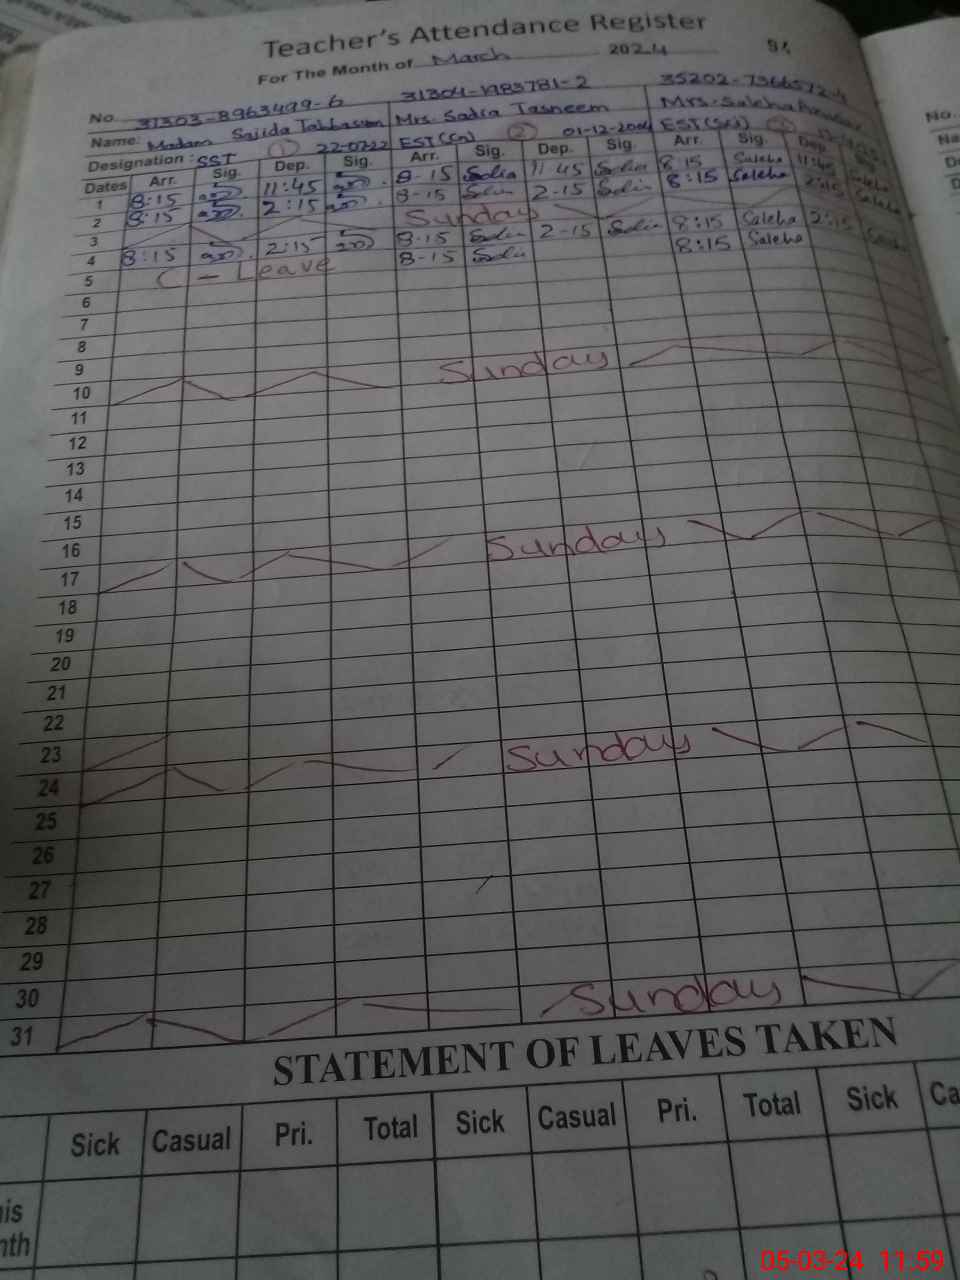 Teacher's Attendance Register
For The Month of March 2024
No. 31303-8963499-6 31304-1983781-2 35202-
Name: Madam Sajida Tabbasum Mrs. Sadia Tasneem Mrs. Saleha
Designation: SST ① 22-07-22 EST(Gn) ② 01-12-2004 EST(Sci)
Dates Arr. Sig. Dep. Sig. Arr. Sig. Dep. Sig. Arr. Sig. Dep.
1 8:15 11:45 8-15 Sadia 11 45 Sadia 8:15 Saleha 11:45 Saleha
2 8:15 2:15 8-15 Sadia 2-15 Sadia 8:15 Saleha 2:15 Saleha
3 Sunday
4 8:15 2:15 8-15 Sadia 2-15 Sadia 8:15 Saleha 2:15 Saleha
5 C - Leave 8-15 Sadia 8:15 Saleha
6
7
8
9
10 Sunday
11
12
13
14
15
16
17 Sunday
18
19
20
21
22
23
24 Sunday
25
26
27
28
29
30
31 Sunday
STATEMENT OF LEAVES TAKEN
Sick Casual Pri. Total Sick Casual Pri. Total Sick Ca
his
nth
No.
Na
D
05-03-24 11:59